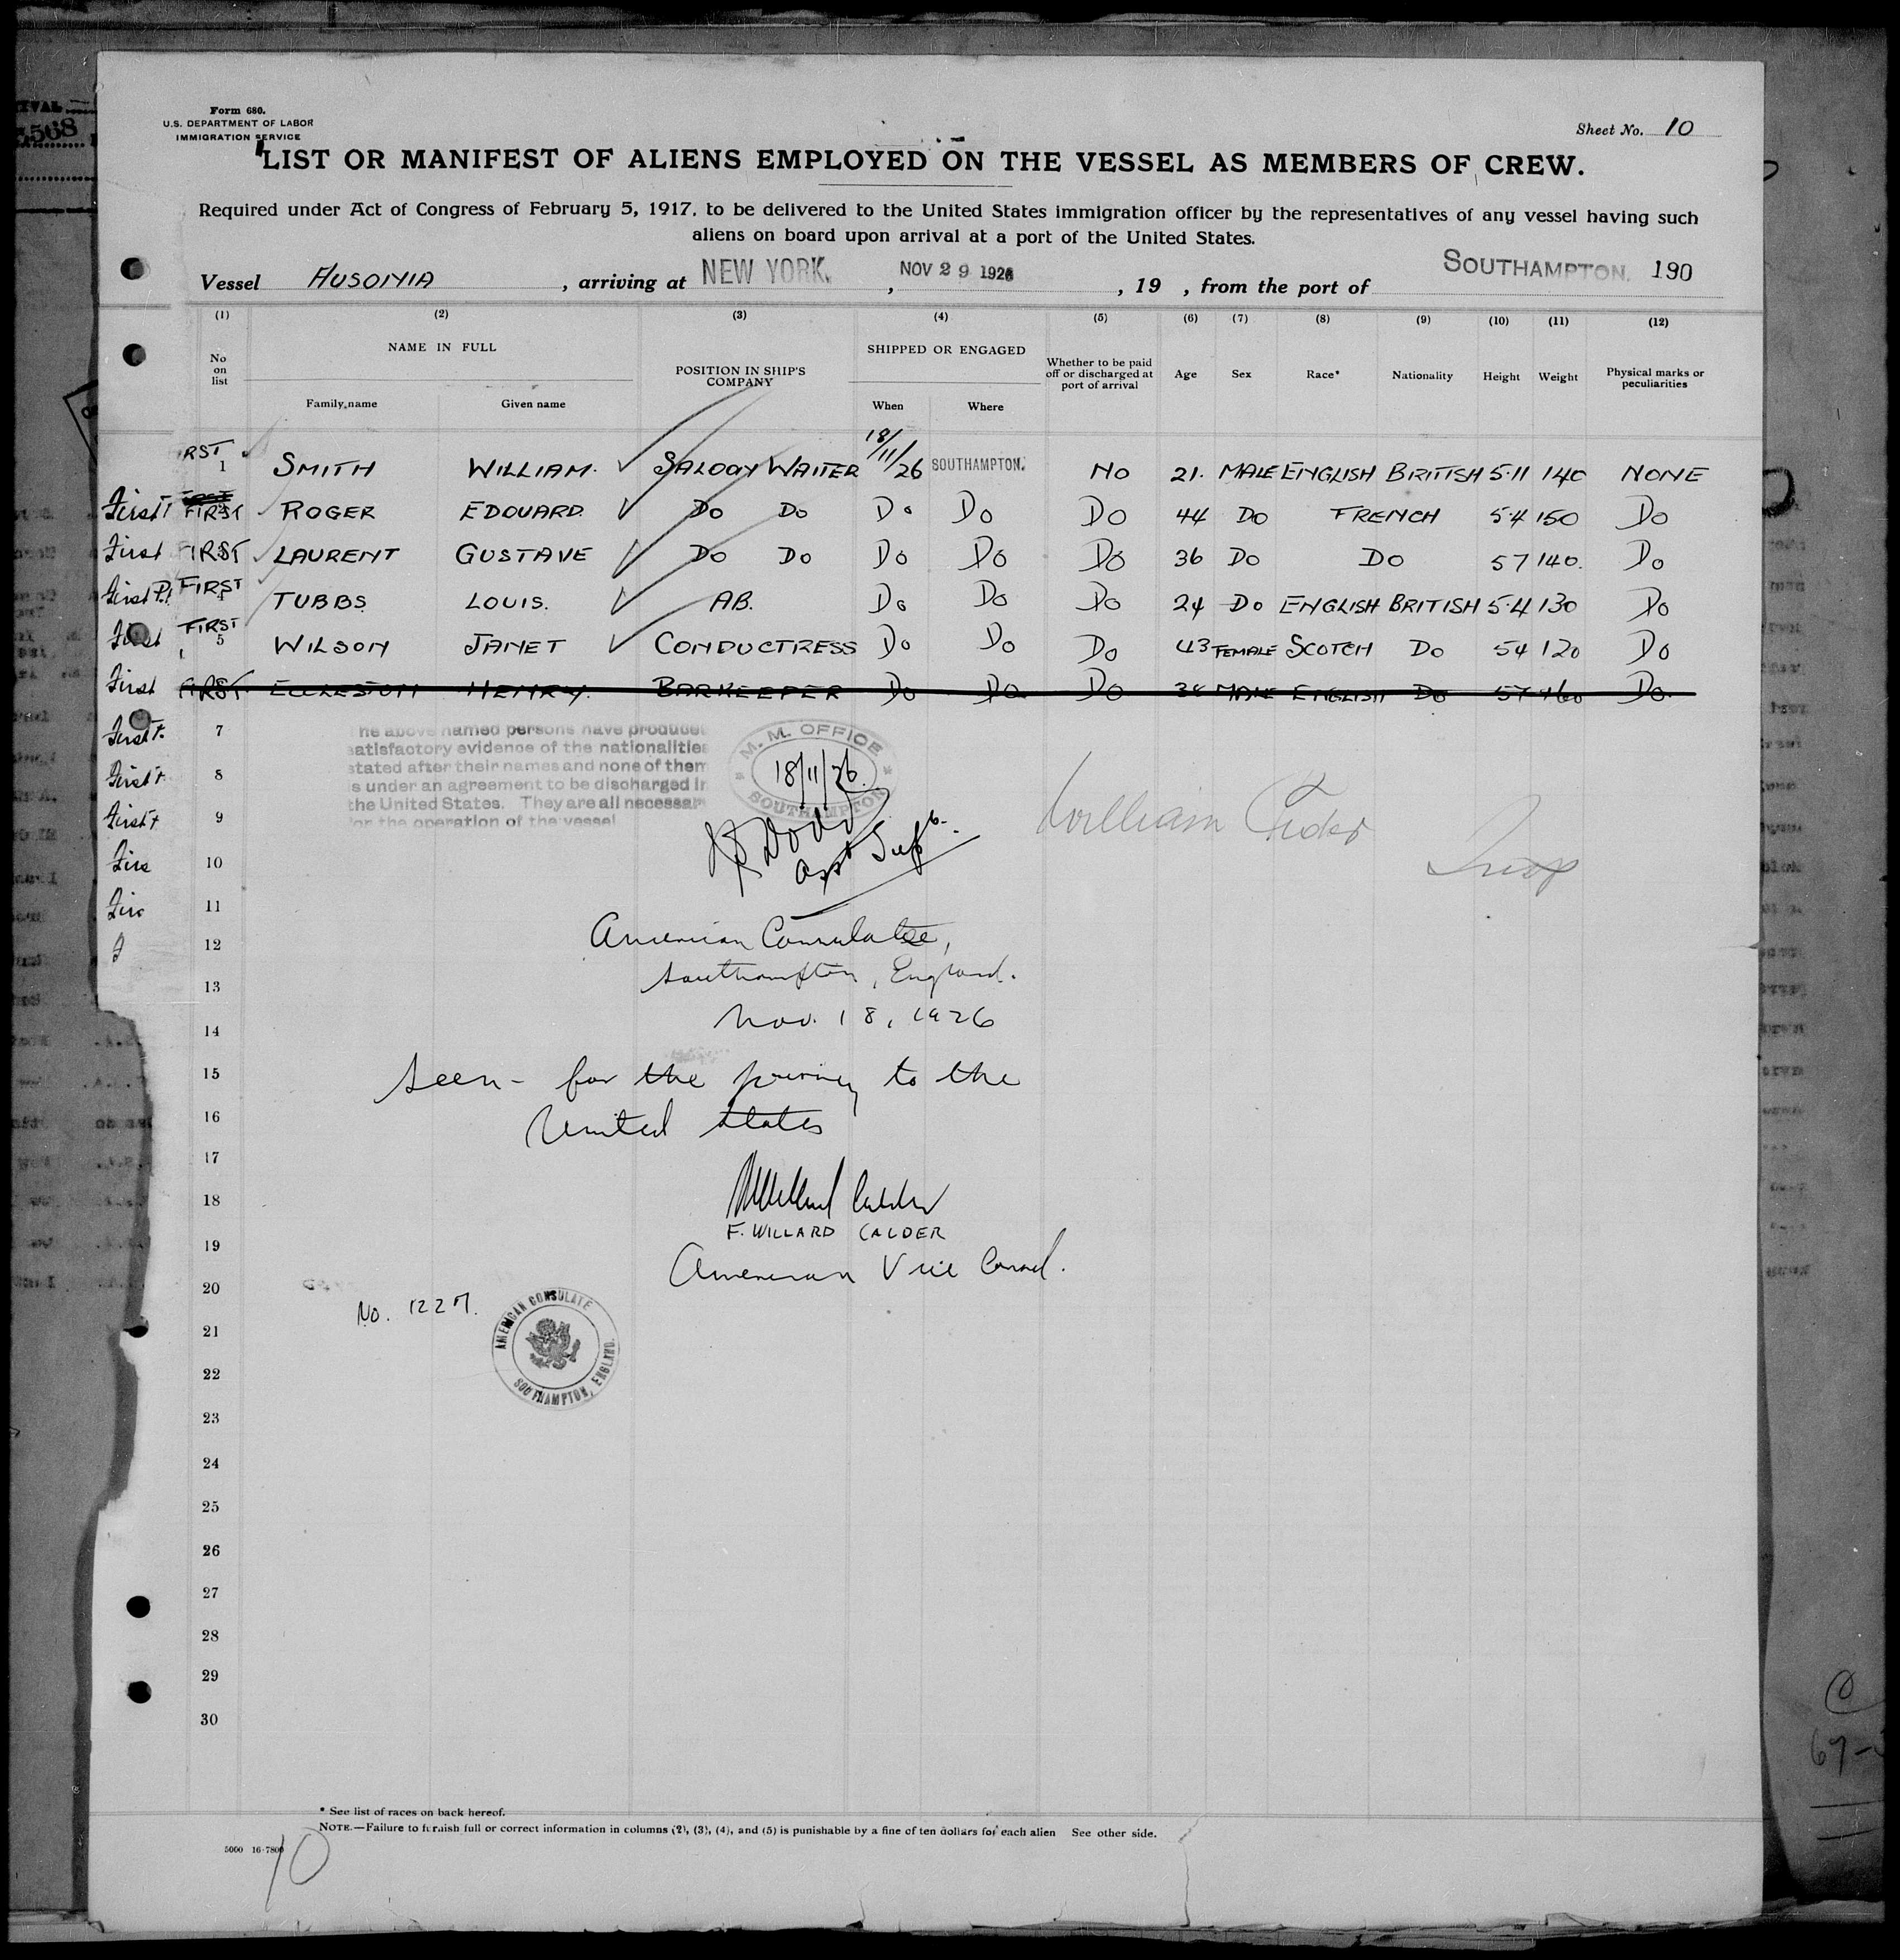 Form 680.
U.S. DEPARTMENT OF LABOR
IMMIGRATION SERVICE
Sheet No. 10
LIST OR MANIFEST OF ALIENS EMPLOYED ON THE VESSEL AS MEMBERS OF CREW.
Required under Act of Congress of February 5, 1917, to be delivered to the United States immigration officer by the representatives of any vessel having such
aliens on board upon arrival at a port of the United States.
Vessel AUSONIA, arriving at NEW YORK, NOV 29 1926, 19 , from the port of SOUTHAMPTON. 190
(1) (2) (3) (4) (5) (6) (7) (8) (9) (10) (11) (12)
No on list NAME IN FULL POSITION IN SHIP'S COMPANY SHIPPED OR ENGAGED Whether to be paid off or discharged at port of arrival Age Sex Race* Nationality Height Weight Physical marks or peculiarities
Family name Given name When Where
RST 1 SMITH WILLIAM. SALOON WAITER 18/11/26 SOUTHAMPTON. NO 21. MALE ENGLISH BRITISH 5.11 140 NONE
First FIRST ROGER EDOUARD. DO DO Do Do Do 44 DO FRENCH 5.4 150 Do
First FIRST LAURENT GUSTAVE DO DO Do Do Do 36 DO DO 57 140. Do
First FIRST TUBBS LOUIS. AB. Do Do Do 24 DO ENGLISH BRITISH 5.4 130 Do
First FIRST 5 WILSON JANET CONDUCTRESS Do Do Do 43 FEMALE SCOTCH DO 54 120 Do
First FIRST ECCLESTON HENRY. BARKEEPER Do Do Do 38 MALE ENGLISH DO 57 160 Do.
First 7
First 8
First 9
10
11
12
13
14
15
16
17
18
19
20
21
22
23
24
25
26
27
28
29
30
he above named persons have produce
satisfactory evidence of the nationalities
stated after their names and none of them
is under an agreement to be discharged in
the United States. They are all necessar
for the operation of the vessel
M. M. OFFICE
18/11/26.
SOUTHAMPTON
Dodd
William
American Consulate,
Southampton, England.
Nov. 18, 1926
Seen - for the journey to the
United States
F. WILLARD CALDER
American Vice Consul.
No. 1227.
AMERICAN CONSULATE
SOUTHAMPTON, ENGLAND.
* See list of races on back hereof.
NOTE.—Failure to furnish full or correct information in columns (2), (3), (4), and (5) is punishable by a fine of ten dollars for each alien See other side.
5000 16-7800
10
568